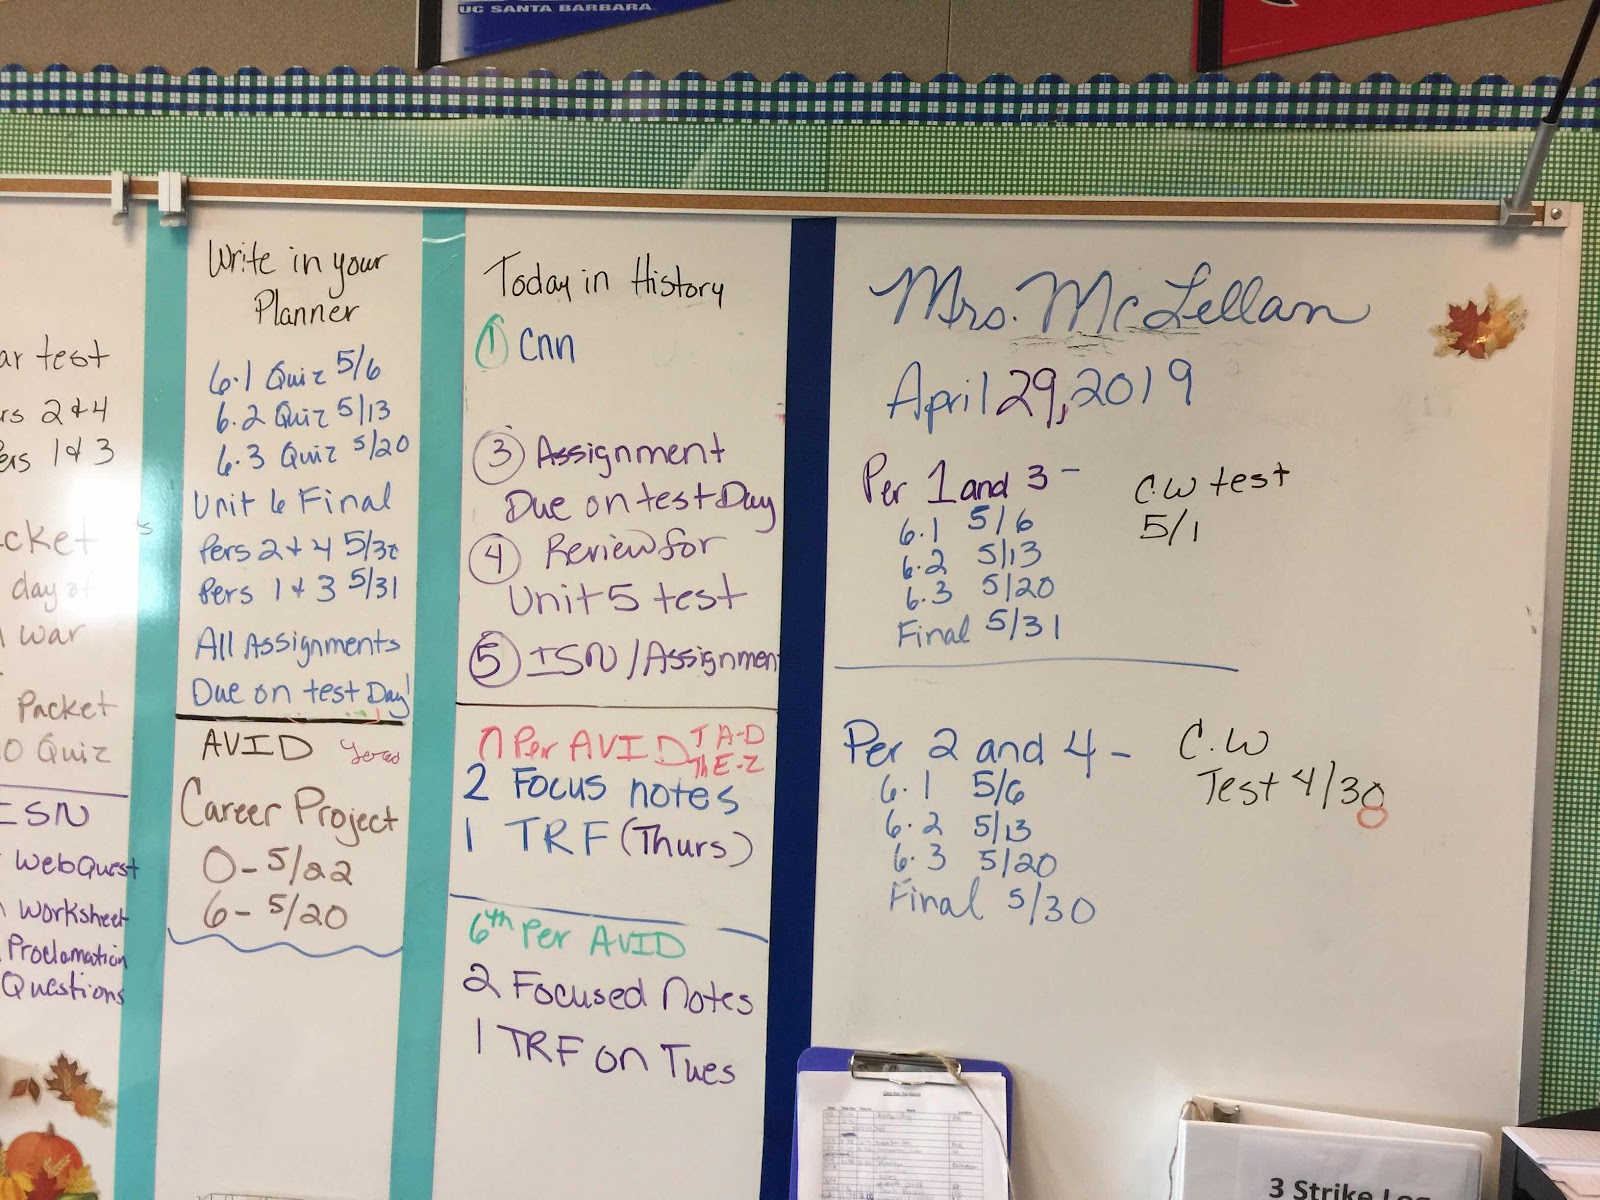 UC SANTA BARBARA
ar test
rs 2 & 4
ers 1 & 3
cket
day of
war
Packet
0 Quiz
ISN
WebQuest
Worksheet
Proclamation
Questions
Write in your
Planner
6.1 Quiz 5/6
6.2 Quiz 5/13
6.3 Quiz 5/20
Unit 6 Final
Pers 2 + 4 5/30
Pers 1 + 3 5/31
All Assignments
Due on test Day!
AVID
Career Project
0 - 5/22
6 - 5/20
Today in History
1 Cnn
3 Assignment
Due on test Day
4 Review for
Unit 5 test
5 ISN / Assignmen
Per AVID T A-D
Th E-Z
2 Focus notes
1 TRF (Thurs)
6th Per AVID
2 Focused Notes
1 TRF on Tues
Mrs. McLellan
April 29, 2019
Per 1 and 3 - C.W test
5/1
6.1 5/6
6.2 5/13
6.3 5/20
Final 5/31
Per 2 and 4 - C.W
Test 4/30
6.1 5/6
6.2 5/13
6.3 5/20
Final 5/30
3 Strike Log